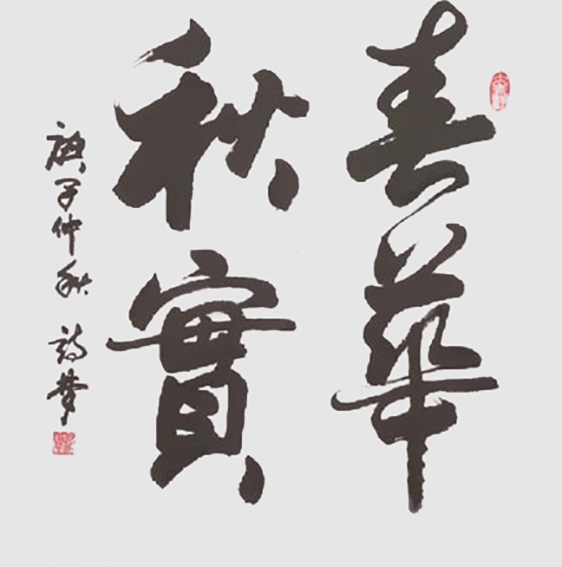 春華
秋實
庚子仲秋